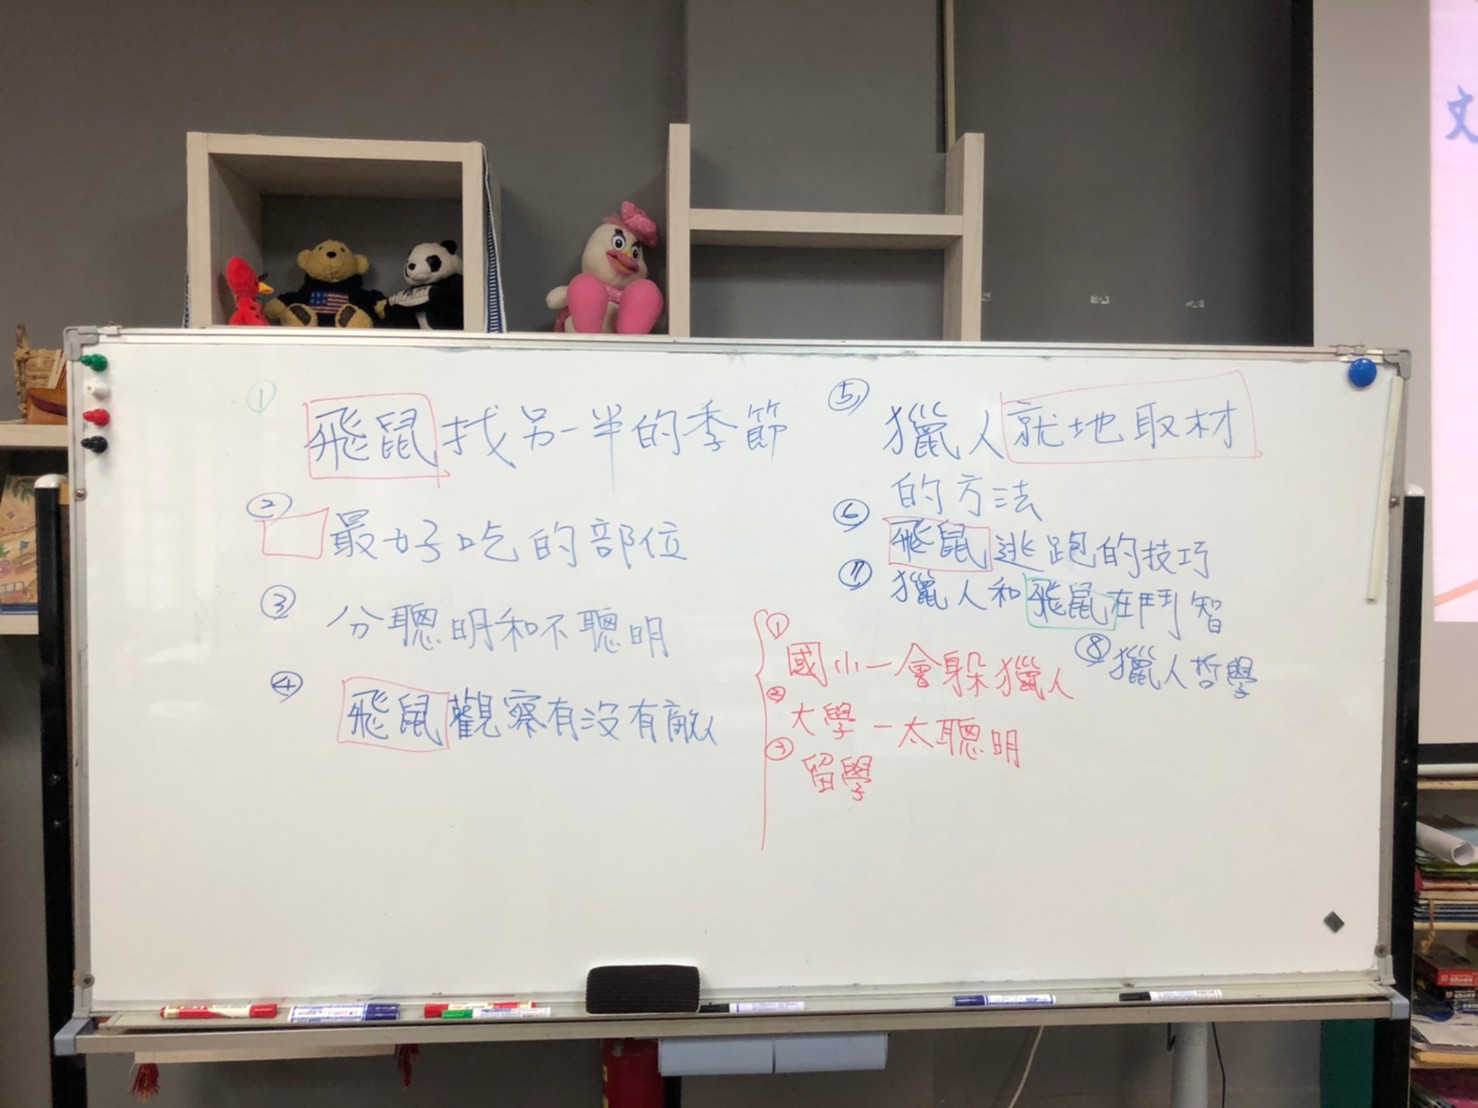 ①
飛鼠找另一半的季節
②
最好吃的部位
③
分聰明和不聰明
④
飛鼠觀察有沒有敵人
⑤
獵人就地取材
的方法
⑥
飛鼠逃跑的技巧
⑦
獵人和飛鼠在鬥智
⑧獵人哲學
①
國小一會躲獵人
②
大學一太聰明
③
留學
文